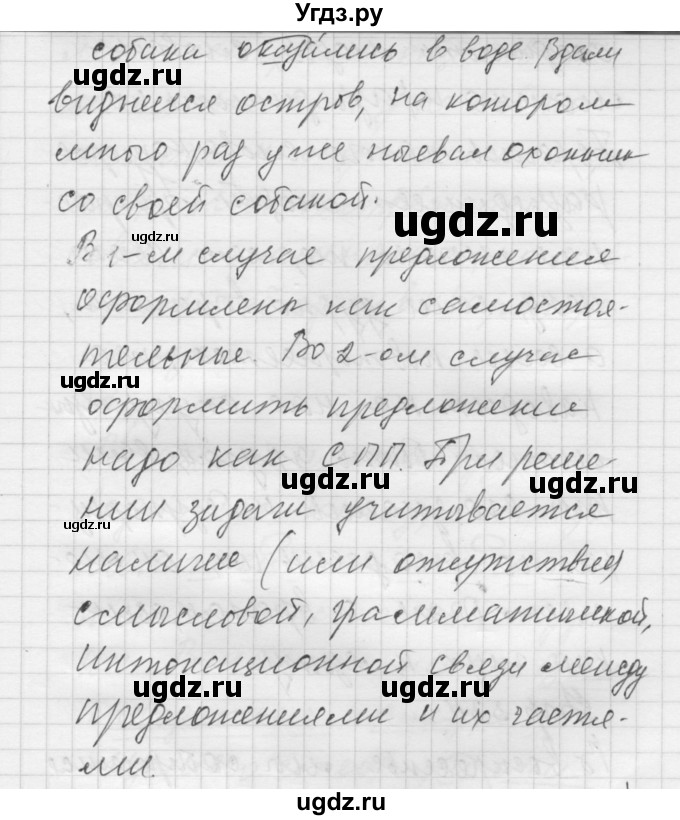 Угдз.ру
собака оказались в воде. Вдали
виднелся остров, на котором
много раз уже ночевал охотник
со своей собакой.
В 1-м случае предложения
оформлены как самостоя-
тельные. Во 2-ом случае
оформить предложение
надо как СПП. При реше-
нии задачи учитывается
наличие (или отсутствие)
смысловой, грамматической,
интонационной связи между
предложениями и их частя-
ми.
ugdz.ru
ugdz.ru
ugdz.ru
ugdz.ru
ugdz.ru
ugdz.ru
ugdz.ru
ugdz.ru
ugdz.ru
ugdz.ru
ugdz.ru